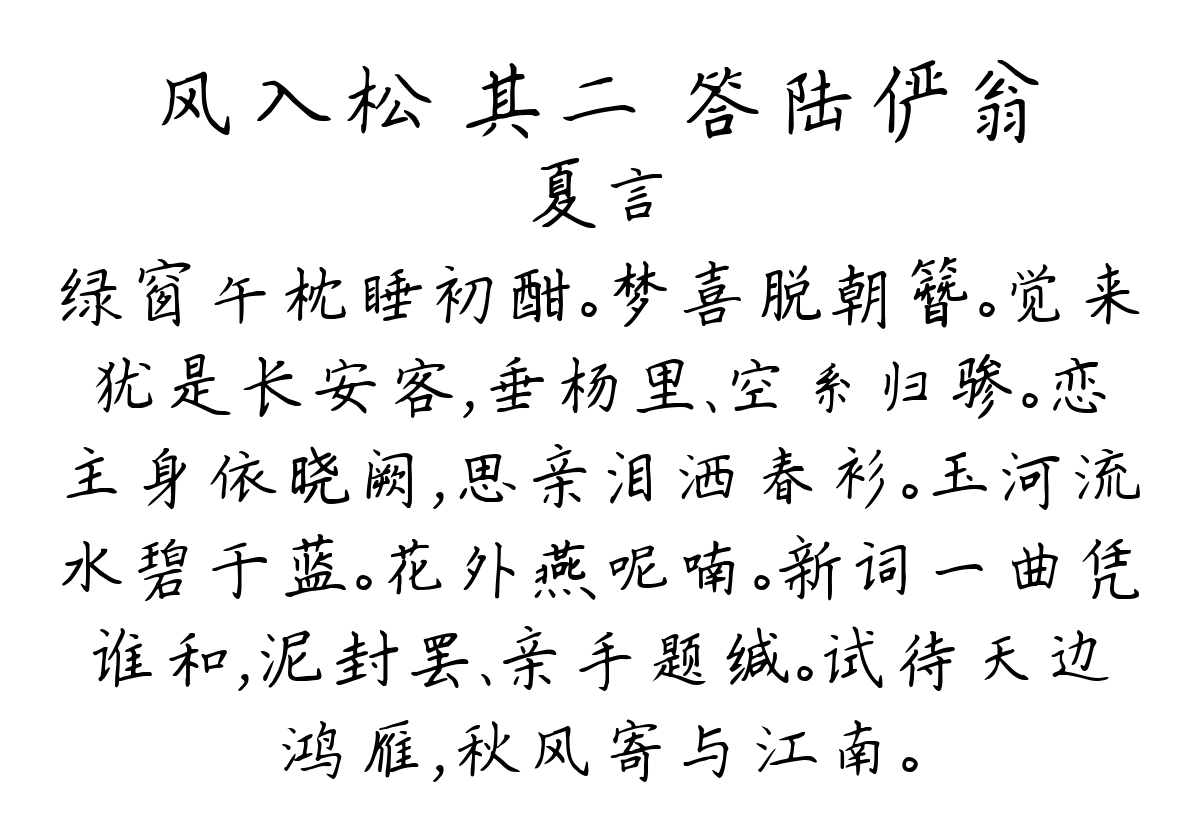 风入松 其二 答陆俨翁
夏言
绿窗午枕睡初酣。梦喜脱朝簪。觉来
犹是长安客,垂杨里、空系归骖。恋
主身依晓阙,思亲泪洒春衫。玉河流
水碧于蓝。花外燕呢喃。新词一曲凭
谁和,泥封罢、亲手题缄。试待天边
鸿雁,秋风寄与江南。